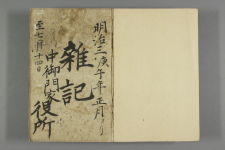 明治三庚午年正月ゟ
雑記
中御門家
役所
至七月十四日